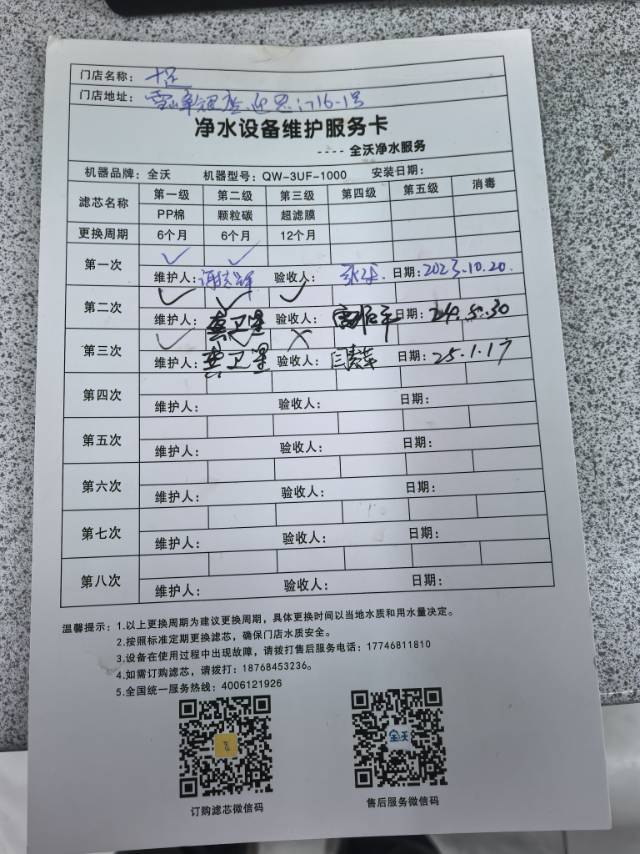 门店名称：
门店地址：
净水设备维护服务卡
----全沃净水服务
机器品牌：全沃 机器型号：QW-3UF-1000 安装日期：
滤芯名称 第一级 第二级 第三级 第四级 第五级 消毒
PP棉 颗粒碳 超滤膜
更换周期 6个月 6个月 12个月
第一次 ✓ ✓
维护人： 验收人： 日期：2023.10.20.
第二次 ✓ ✓ ✓
维护人：龚卫星 验收人： 日期：24.5.30
第三次 ✓ ✓ ×
维护人：龚卫星 验收人： 日期：25.1.17
第四次
维护人： 验收人： 日期：
第五次
维护人： 验收人： 日期：
第六次
维护人： 验收人： 日期：
第七次
维护人： 验收人： 日期：
第八次
维护人： 验收人： 日期：
温馨提示：1.以上更换周期为建议更换周期，具体更换时间以当地水质和用水量决定。
2.按照标准定期更换滤芯，确保门店水质安全。
3.设备在使用过程中出现故障，请拨打售后服务电话：17746811810
4.如需订购滤芯，请拨打：18768453236。
5.全国统一服务热线：4006121926
全沃
订购滤芯微信码 售后服务微信码